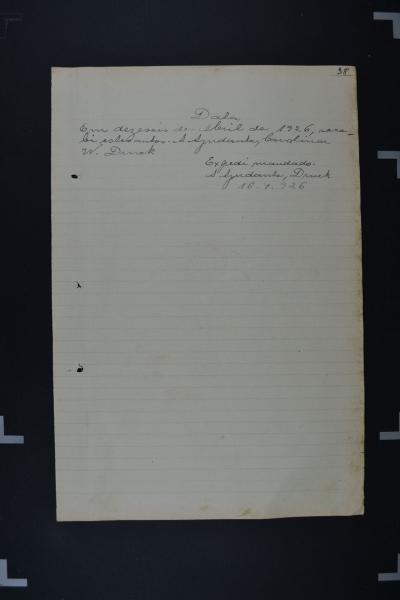 38
Data
Em dezeseis de Abril de 1926, rece-
bi estes autos. A Ajudante, Carolina
W. Druck
Expedi mandado.
A Ajudante, Druck
16.4.926